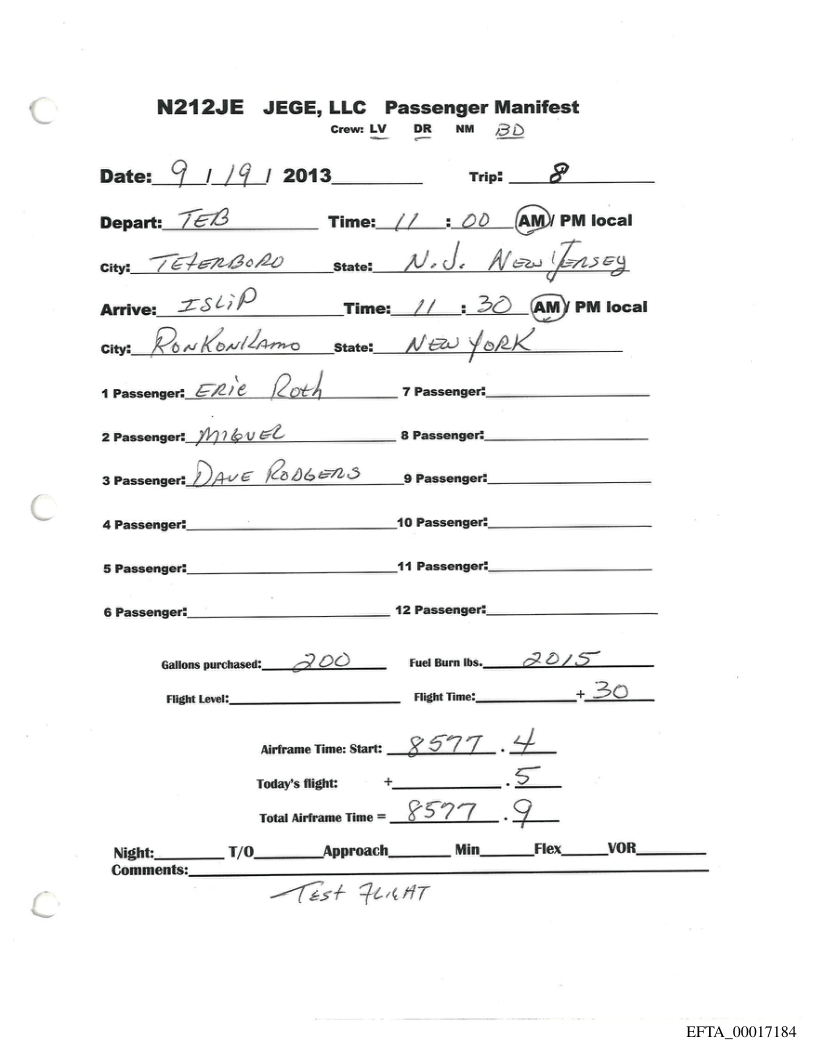 N212JE JEGE, LLC Passenger Manifest
Crew: LV DR NM BD
Date: 9 / 19 / 2013 Trip: 8
Depart: TEB Time: 11 : 00 AM/ PM local
City: TETERBORO State: N.J. NEW JERSEY
Arrive: ISLIP Time: 11 : 30 AM/ PM local
City: RONKONKAMO State: NEW YORK
1 Passenger: ERIC Roth 7 Passenger:
2 Passenger: MIGUEL 8 Passenger:
3 Passenger: DAVE RODGERS 9 Passenger:
4 Passenger: 10 Passenger:
5 Passenger: 11 Passenger:
6 Passenger: 12 Passenger:
Gallons purchased: 200 Fuel Burn lbs. 2015
Flight Level: Flight Time: + 30
Airframe Time: Start: 8577 . 4
Today's flight: + . 5
Total Airframe Time = 8577 . 9
Night: T/O Approach Min Flex VOR
Comments:
TEST FLIGHT
EFTA_00017184